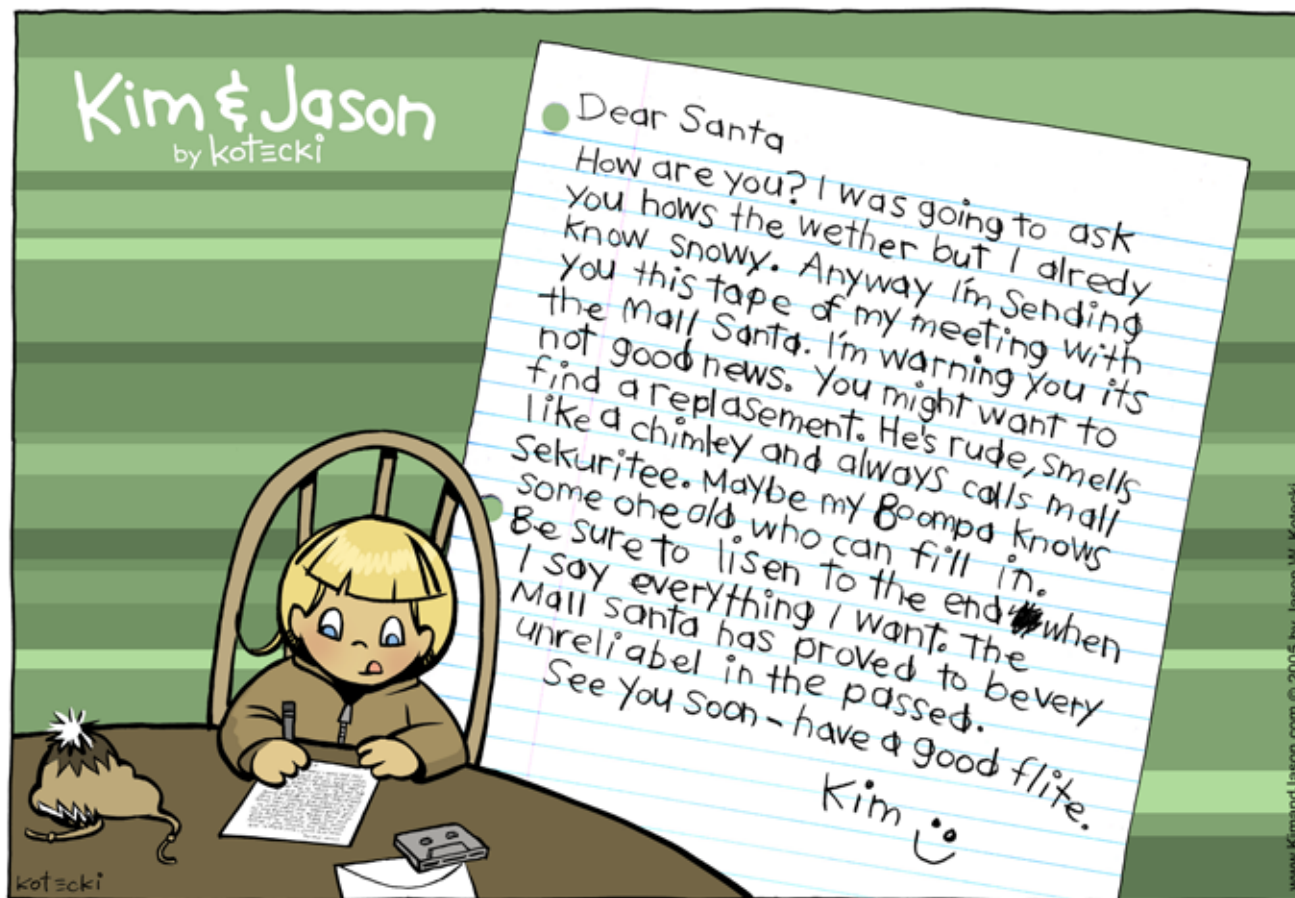 Kim & Jason
by kotecki
Dear Santa
How are you? I was going to ask
you hows the wether but I alredy
know snowy. Anyway I'm sending
you this tape of my meeting with
the Mall Santa. I'm warning you its
not good news. You might want to
find a replasement. He's rude, smells
like a chimley and always calls mall
sekuritee. Maybe my Boompa knows
some one old who can fill in.
Be sure to lisen to the end when
I say everything I want. The
Mall santa has proved to be very
unreliabel in the passed.
See you soon - have a good flite.
Kim
kotecki
www.KimandJason.com © 2005 by Jason W. Kotecki